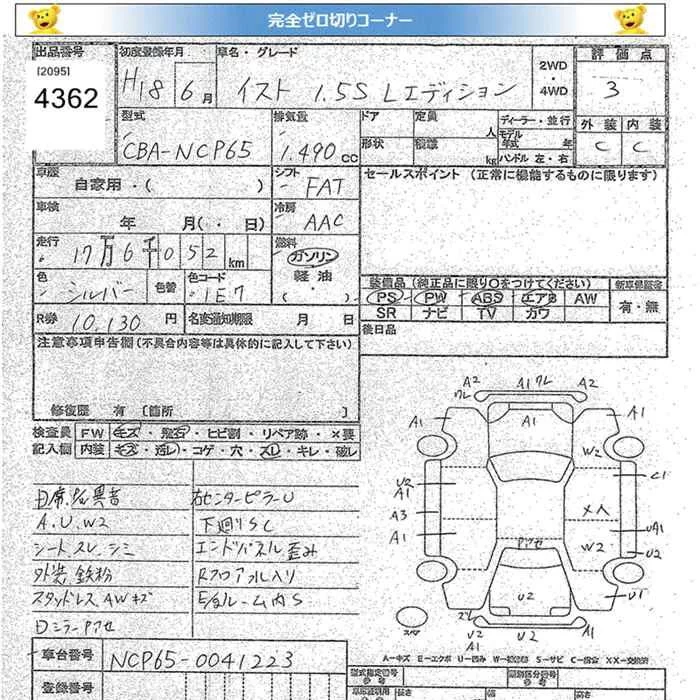 完全ゼロ切りコーナー
出品番号
[2095]
4362
初度登録年月
H18 6月
車名・グレード
イスト 1.5S Lエディション
2WD
・
4WD
評価点
3
外装 内装
C C
型式
CBA-NCP65
排気量
1.490 CC
ドア 定員 人
形状 積載 kg
ディーラー・並行
モデル年式 年
ハンドル 左・右
車歴
自家用・( )
シフト
FAT
車検
年 月(・ 日)
冷房
AAC
走行
17万6千052 km
燃料
ガソリン
軽油
( )
色
シルバー
色替
色コード
1E7
R券 10,130 円
名変通知期限 月 日
セールスポイント (正常に機能するものに限ります)
装備品 (純正品に限り○をつけてください)
新車保証書
PS PW ABS エアB AW
SR ナビ TV カワ
有・無
後日品
注意事項申告欄 (不具合内容等は具体的に記入して下さい)
修復歴 有 [箇所 ]
検査員 FW キズ・飛石・ヒビ割・リペア跡・×要
記入欄 内装 キズ・汚レ・コゲ・穴・スレ・キレ・破レ
A.U.W2
シートスレ.シミ
外装鉄粉
スタッドレス.AWキズ
ミラーアセ
右センターピラーU
下廻りSC
エンドパネル歪み
Rフロア水入り
E/gルーム内S
A2 A1 ワレ A2
ワレ
A1 A1 A1
W2
U2 C1
A1
A3 ×A
A1 UA1
W2 U2
U2 U1
スペア
U2 U2 A1
A1
A-キズ E-エクボ U-凹み W-補修跡 S-サビ C-腐食 XX-交換済
車台番号 NCP65-0041223
登録番号
型式指定番号
類別区分番号